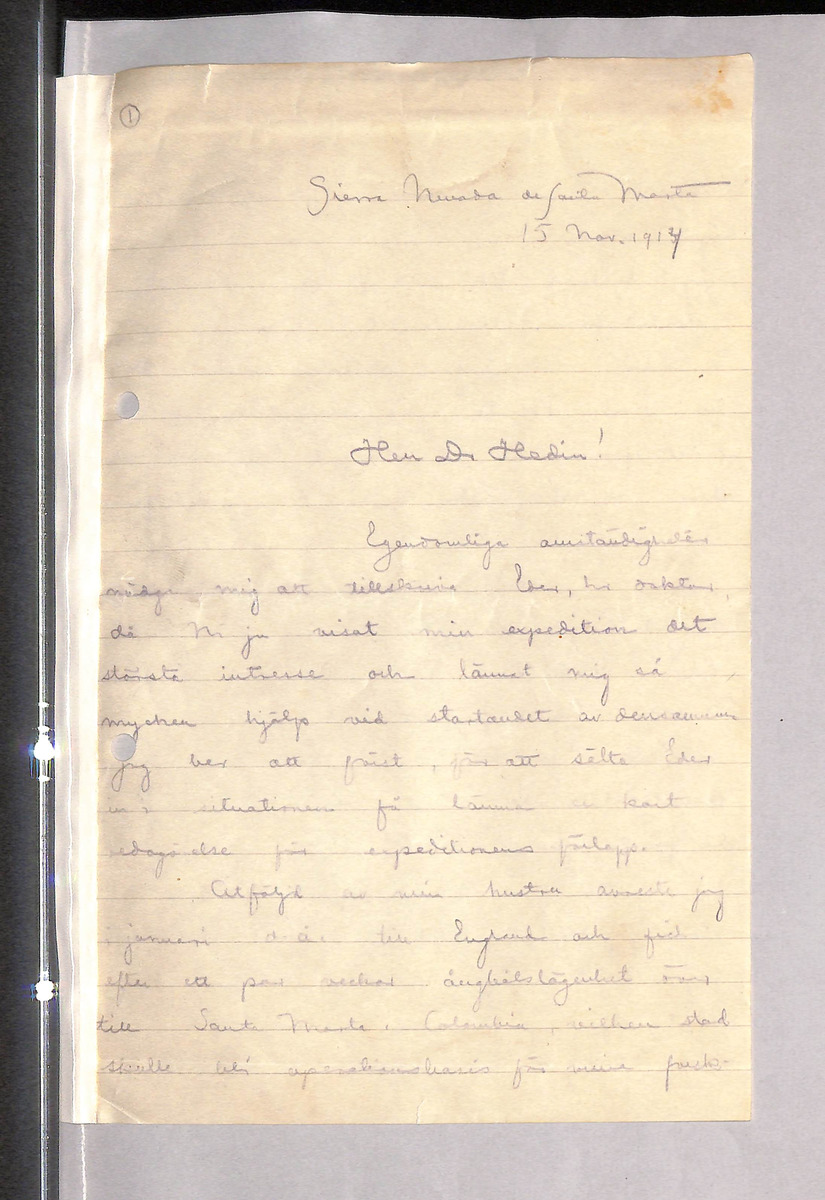 ①
Sierra Nevada de Santa Marta
15 Nov. 1914
Herr Dr Hedin!
Egendomliga omständigheter
nödga mig att tillskriva Eder, hr doktor,
då Ni ju visat min expedition det
största intresse och lämnat mig så
mycken hjälp vid startandet av densamma
jag ber att först, för att sätta Eder
in i situationen få lämna en kort
redogörelse för expeditionens förlopp.
Åtföljd av min hustru avreste jag
i januari d. å. till England och fick
efter ett par veckor ångbåtslägenhet över
till Santa Marta, Colombia, vilken stad
skulle bli operationsbasis för mina forsk-